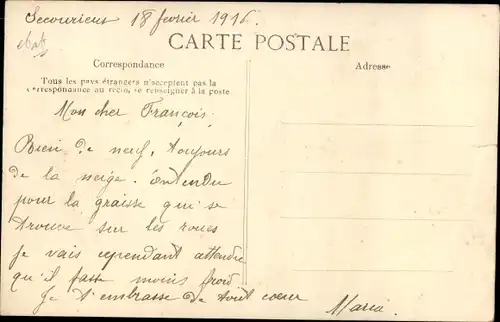 Secourieus 18 fevrier 1916.
CARTE POSTALE
Correspondance
Adresse
Tous les pays étrangers n'acceptent pas la
correspondance au recto, se renseigner à la poste
Mon cher François.
Rien de neuf, toujours
de la neige. Entendu
pour la graisse qui se
trouve sur les roues
Je vais cependant attendre
qu'il fasse moins froid
Je t'embrasse de tout coeur
Maria.